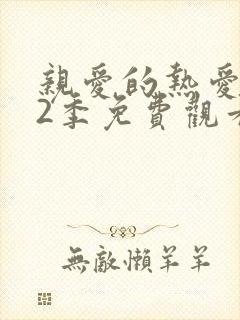 親愛的熱愛
2季免費觀
無敵懶羊羊